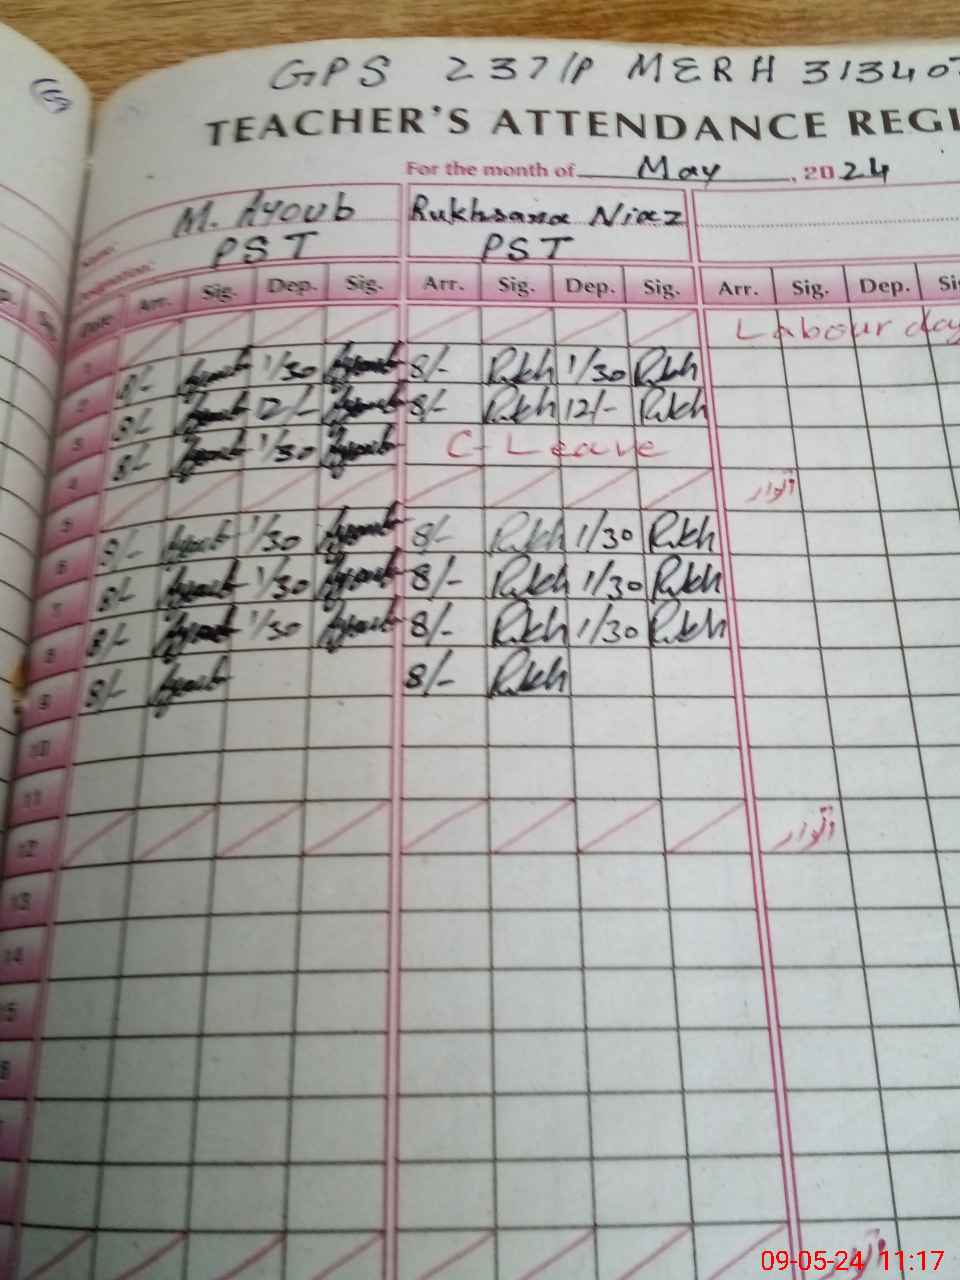 GPS 237/P MERH 313407
TEACHER'S ATTENDANCE REGI
For the month of May, 2024
Name: M. Ayoub Rukhsana Niaz
Designation: PST PST
Date Arr. Sig. Dep. Sig. Arr. Sig. Dep. Sig. Arr. Sig. Dep. Si
1 Labour day
2 8/- Ayoub 1/30 Ayoub 8/- Rukh 1/30 Rukh
3 8/- Ayoub 12/- Ayoub 8/- Rukh 12/- Rukh
4 8/- Ayoub 1/30 Ayoub C-Leave
5 اتوار
6 8/- Ayoub 1/30 Ayoub 8/- Rukh 1/30 Rukh
7 8/- Ayoub 1/30 Ayoub 8/- Rukh 1/30 Rukh
8 8/- Ayoub 1/30 Ayoub 8/- Rukh 1/30 Rukh
9 8/- Ayoub 8/- Rukh
10
11
12 اتوار
13
14
15
اتوار
09-05-24 11:17